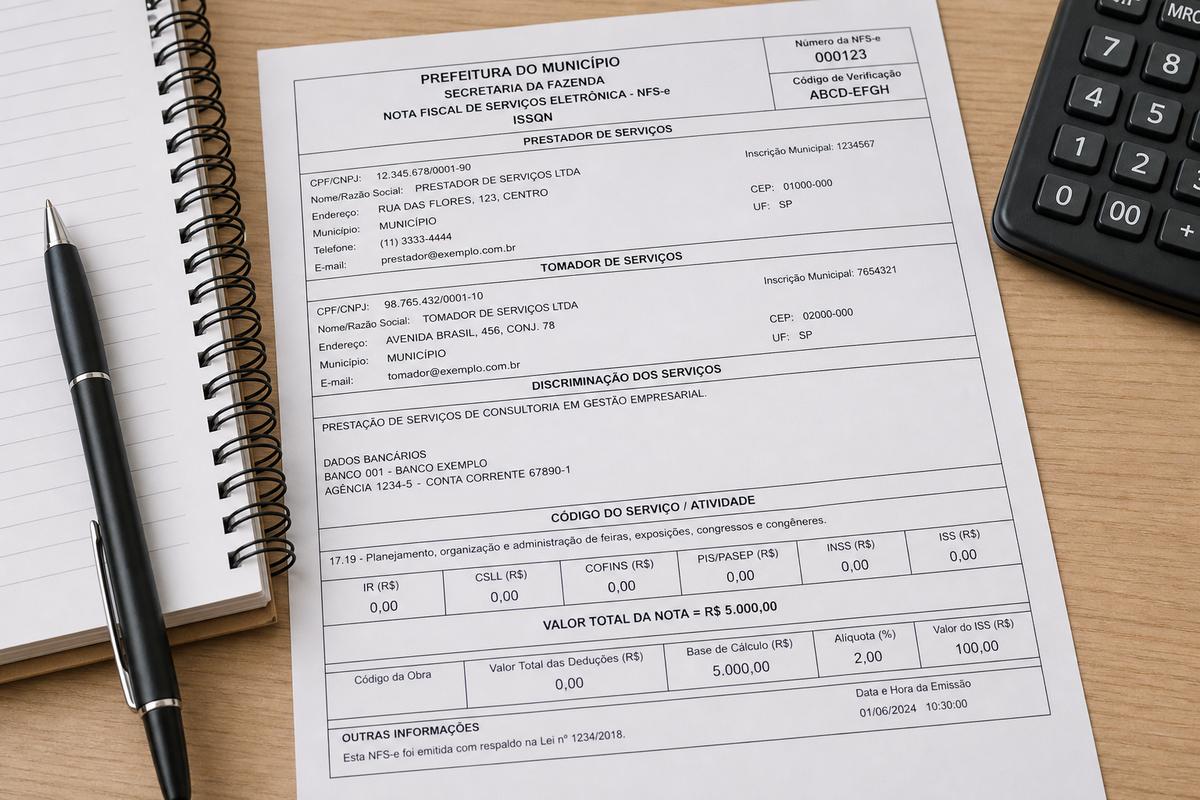 PREFEITURA DO MUNICÍPIO
SECRETARIA DA FAZENDA
NOTA FISCAL DE SERVIÇOS ELETRÔNICA - NFS-e
ISSQN
Número da NFS-e
000123
Código de Verificação
ABCD-EFGH
PRESTADOR DE SERVIÇOS
CPF/CNPJ: 12.345.678/0001-90 Inscrição Municipal: 1234567
Nome/Razão Social: PRESTADOR DE SERVIÇOS LTDA
Endereço: RUA DAS FLORES, 123, CENTRO CEP: 01000-000
Município: MUNICÍPIO UF: SP
Telefone: (11) 3333-4444
E-mail: prestador@exemplo.com.br
TOMADOR DE SERVIÇOS
CPF/CNPJ: 98.765.432/0001-10 Inscrição Municipal: 7654321
Nome/Razão Social: TOMADOR DE SERVIÇOS LTDA
Endereço: AVENIDA BRASIL, 456, CONJ. 78 CEP: 02000-000
Município: MUNICÍPIO UF: SP
E-mail: tomador@exemplo.com.br
DISCRIMINAÇÃO DOS SERVIÇOS
PRESTAÇÃO DE SERVIÇOS DE CONSULTORIA EM GESTÃO EMPRESARIAL.
DADOS BANCÁRIOS
BANCO 001 - BANCO EXEMPLO
AGÊNCIA 1234-5 - CONTA CORRENTE 67890-1
CÓDIGO DO SERVIÇO / ATIVIDADE
17.19 - Planejamento, organização e administração de feiras, exposições, congressos e congêneres.
IR (R$) CSLL (R$) COFINS (R$) PIS/PASEP (R$) INSS (R$) ISS (R$)
0,00 0,00 0,00 0,00 0,00 0,00
VALOR TOTAL DA NOTA = R$ 5.000,00
Código da Obra Valor Total das Deduções (R$) Base de Cálculo (R$) Alíquota (%) Valor do ISS (R$)
0,00 5.000,00 2,00 100,00
OUTRAS INFORMAÇÕES
Esta NFS-e foi emitida com respaldo na Lei nº 1234/2018.
Data e Hora da Emissão
01/06/2024 10:30:00
7 8
4 5
1 2
0 00 +